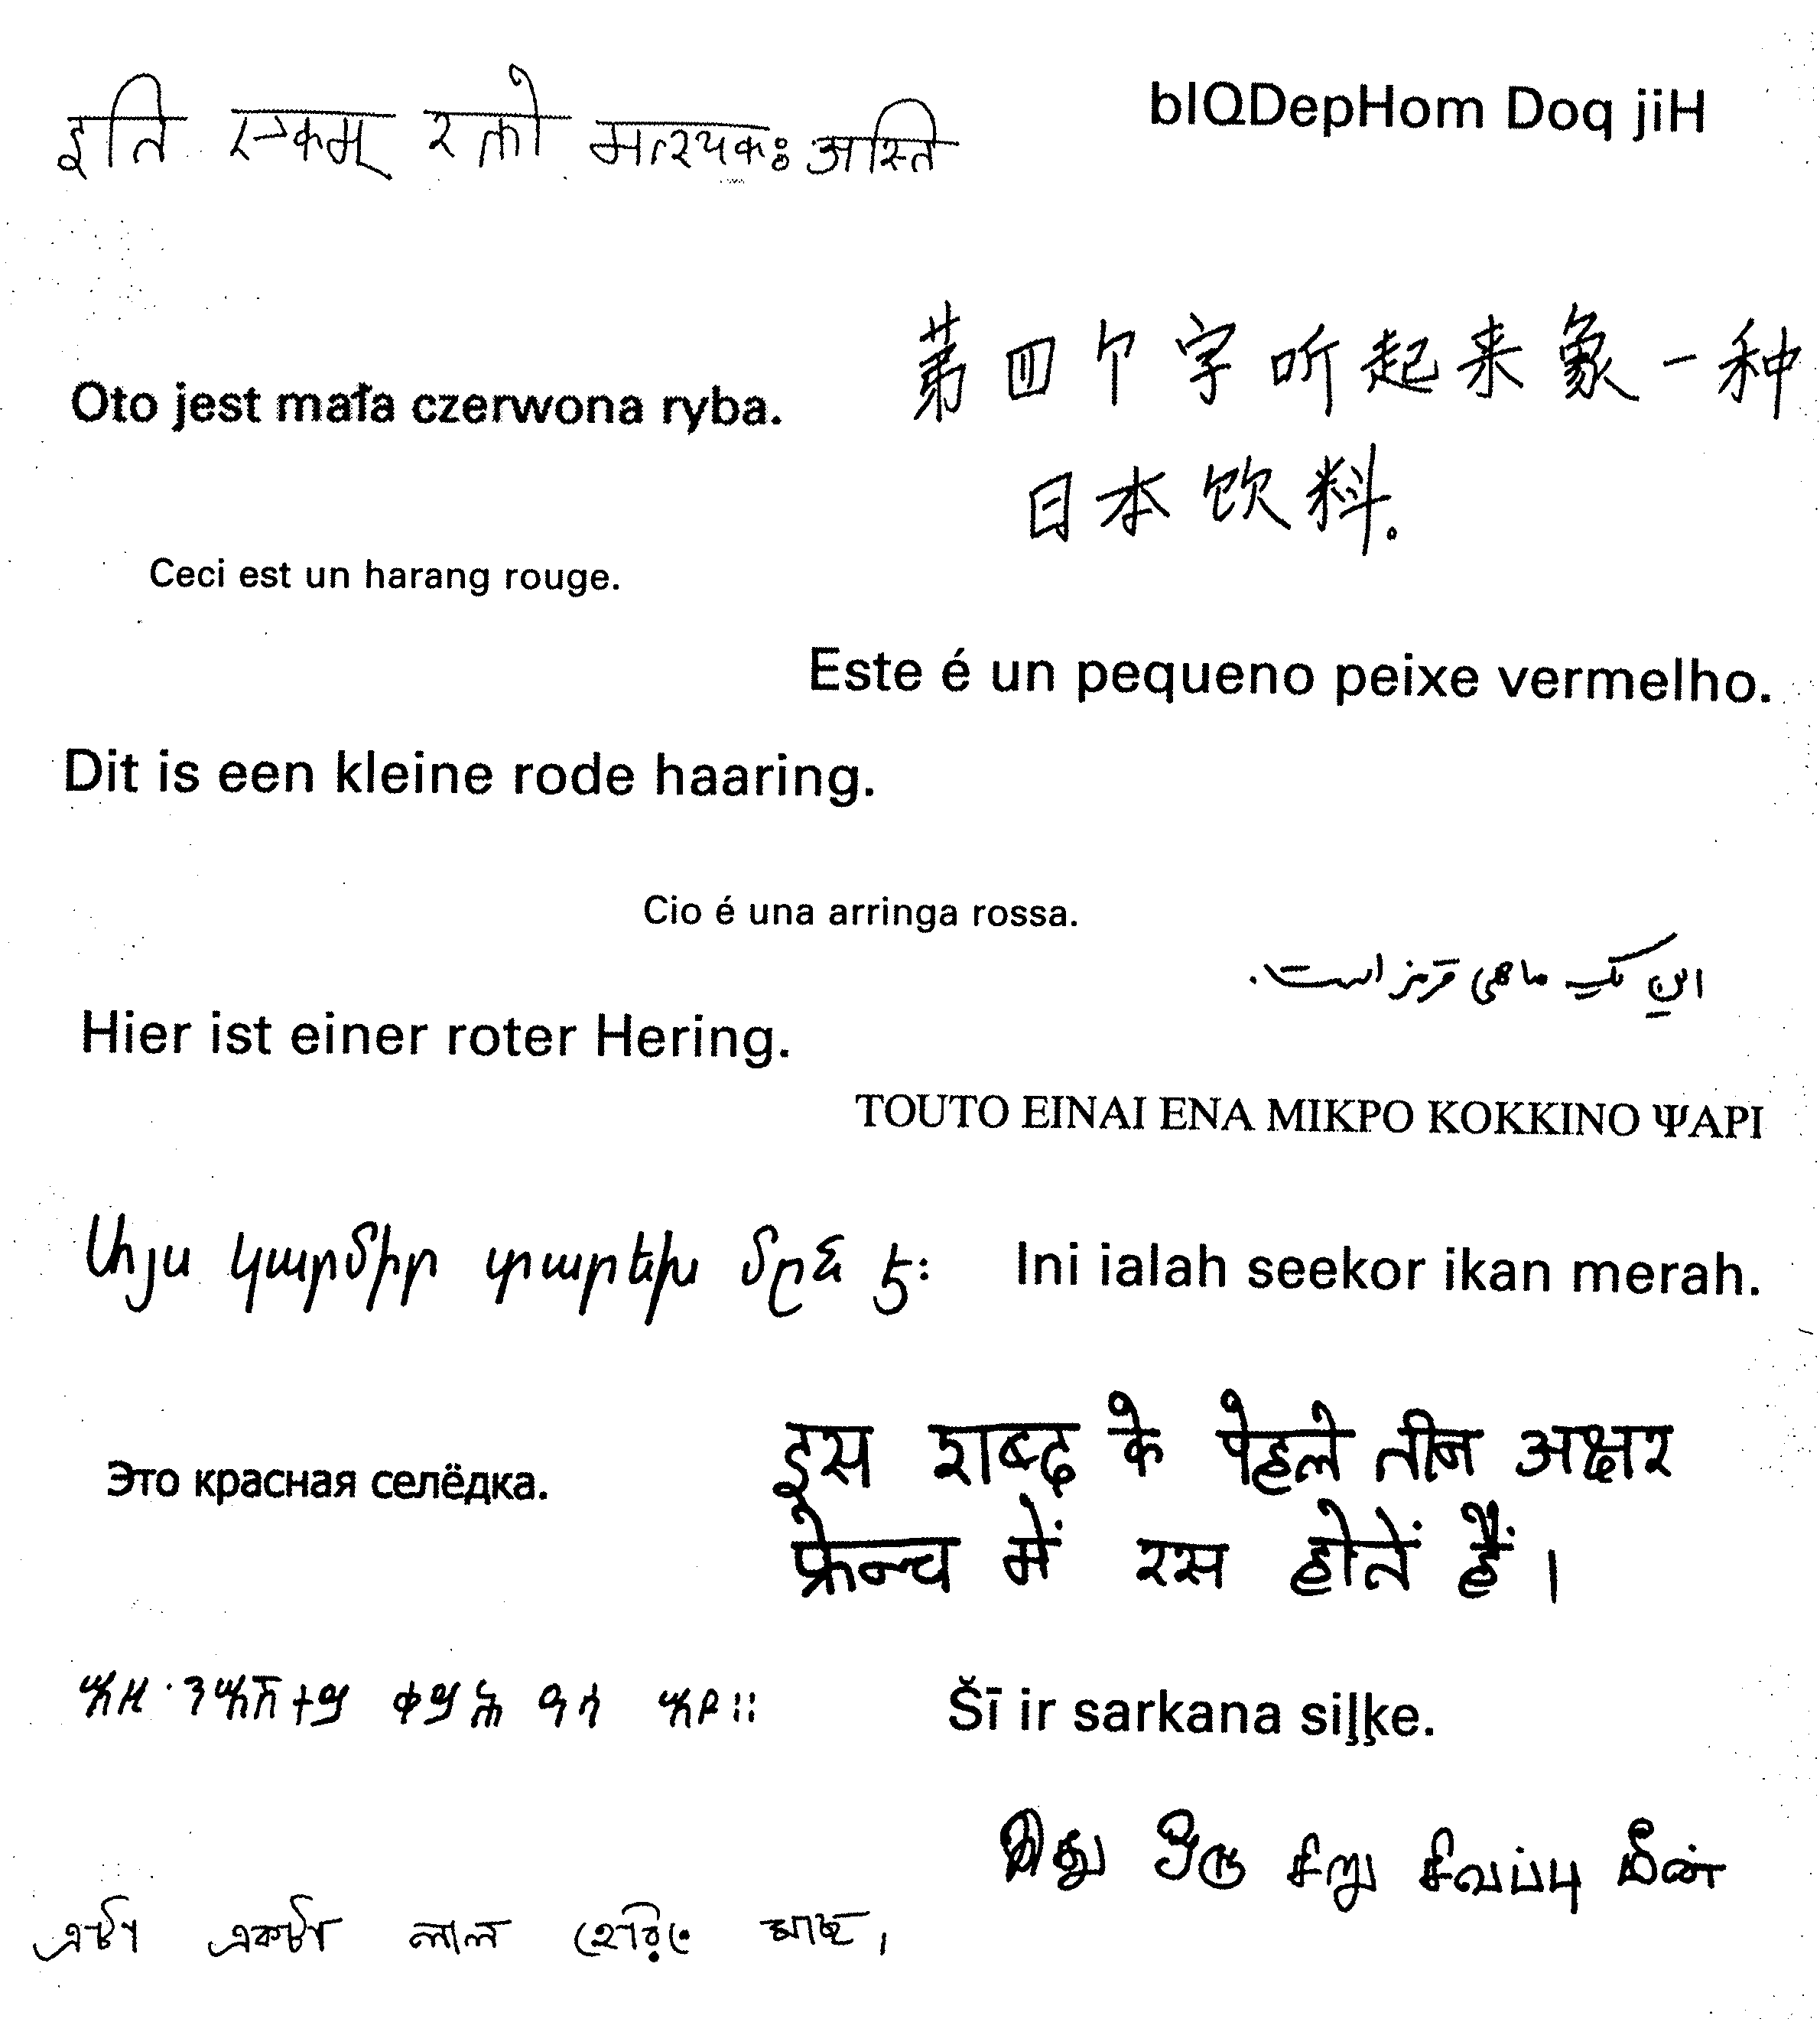 इति एकम् रक्तो मत्स्यकः अस्ति
bIQDepHom Doq jiH
第四个字听起来象一种
Oto jest mała czerwona ryba.
日本饮料。
Ceci est un harang rouge.
Este é un pequeno peixe vermelho.
Dit is een kleine rode haaring.
Cio é una arringa rossa.
این یک ماهی قرمز است.
Hier ist einer roter Hering.
ΤΟUΤΟ ΕΙΝΑΙ ΕΝΑ ΜΙΚΡΟ ΚΟΚΚΙΝΟ ΨΑΡΙ
Այս կարմիր տարեխ մըն է։
Ini ialah seekor ikan merah.
इस शब्द के पेहले तीन अक्षर
Это красная селёдка.
फ्रेन्च में रस होतें हैं ।
Šī ir sarkana siļķe.
இது ஒரு சிறு சிவப்பு மீன்
এটা একটা লাল হেরিং মাছ।